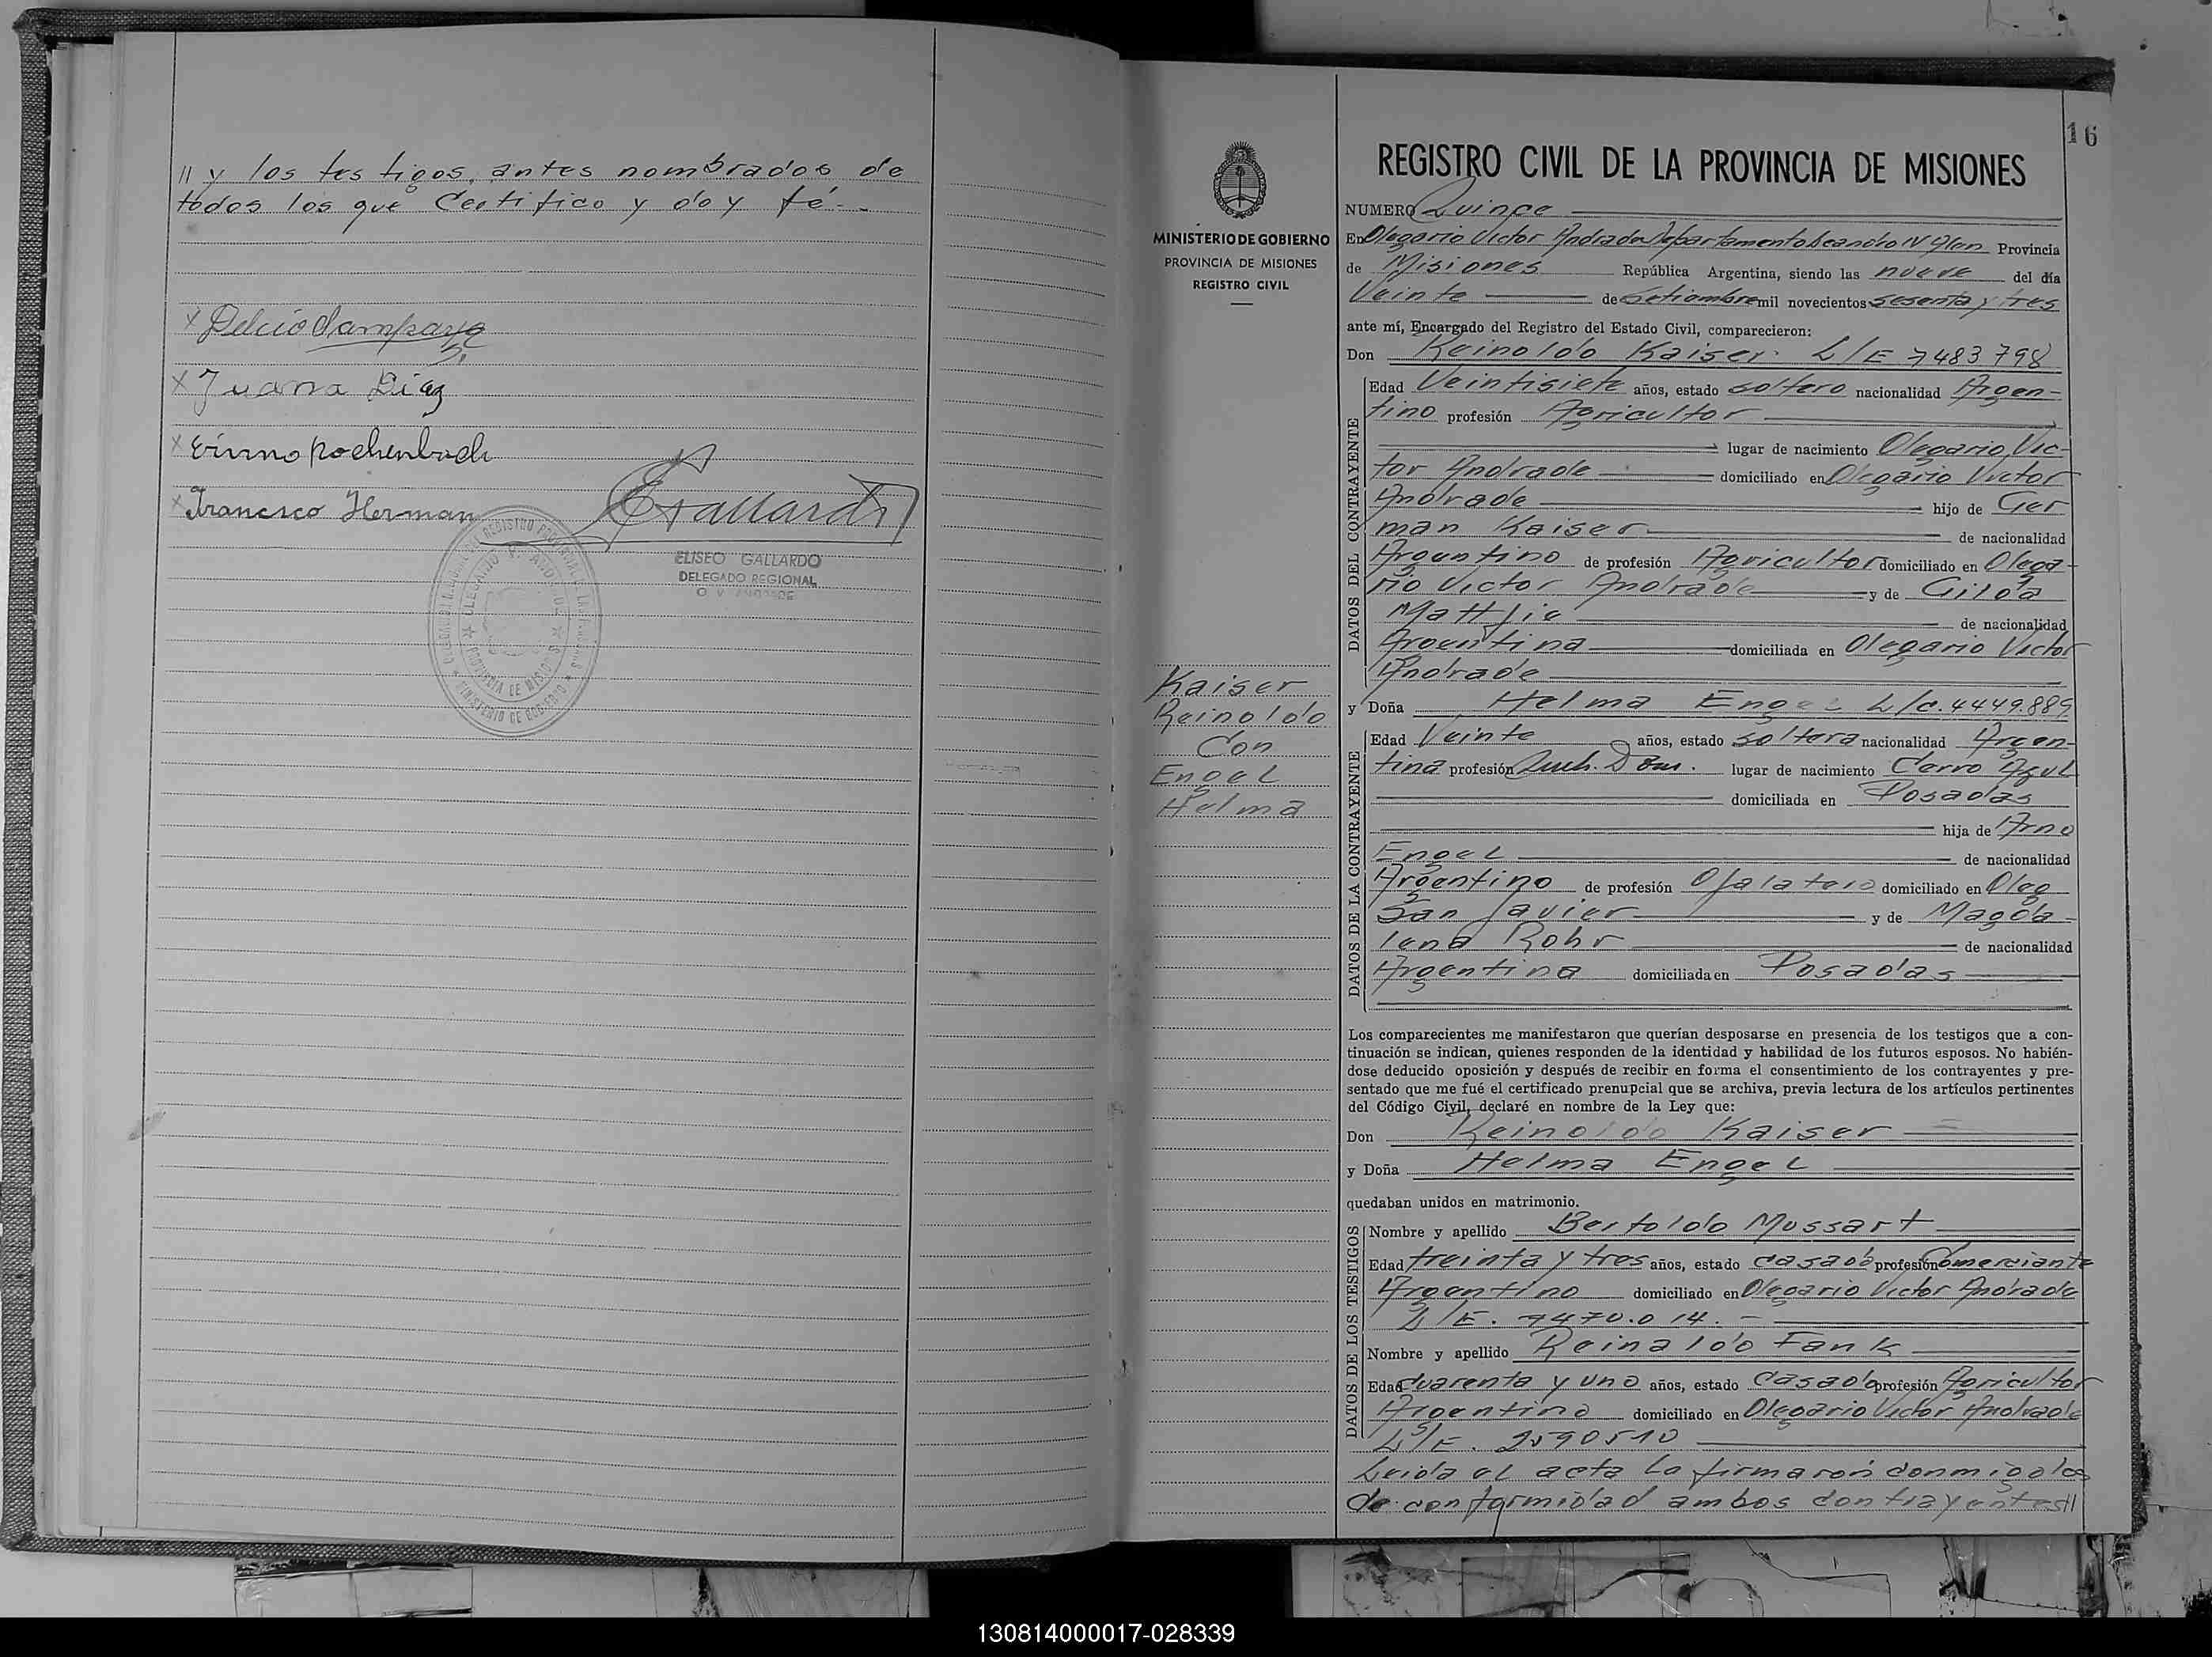 // y los testigos, antes nombrados de
todos los que Certifico y doy fé.-
x Juana Diaz
x Francisco Herman
ELISEO GALLARDO
DELEGADO REGIONAL
O. V. ANDRADE
PROVINCIA DE MISIONES
MINISTERIO DE GOBIERNO
16
MINISTERIO DE GOBIERNO
PROVINCIA DE MISIONES
REGISTRO CIVIL
Kaiser
Reinoldo
Con
Engel
Helma
REGISTRO CIVIL DE LA PROVINCIA DE MISIONES
NUMERO Quince
En Olegario Victor Andrade Departamento Leandro N Alen Provincia
de Misiones República Argentina, siendo las nueve del día
Veinte de Setiembre mil novecientos sesenta y tres
ante mí, Encargado del Registro del Estado Civil, comparecieron:
Don Reinoldo Kaiser L/E 7483798
DATOS DEL CONTRAYENTE
Edad Veintisiete años, estado soltero nacionalidad Argen-
tino profesión Agricultor
lugar de nacimiento Olegario Vic-
tor Andrade domiciliado en Olegario Victor
Andrade hijo de Ger
man Kaiser de nacionalidad
Argentino de profesión Agricultor domiciliado en Olega-
rio Victor Andrade y de Gilda
Mattjie de nacionalidad
Argentina domiciliada en Olegario Victor
Andrade
y Doña Helma Engel L/c. 4449.889
DATOS DE LA CONTRAYENTE
Edad Veinte años, estado soltera nacionalidad Argen-
tina profesión Queh. Dom. lugar de nacimiento Cerro Azul
domiciliada en Posadas
hija de Arno
Engel de nacionalidad
Argentino de profesión Ojalatero domiciliado en Oleg
San Javier y de Magda-
lena Rohr de nacionalidad
Argentina domiciliada en Posadas
Los comparecientes me manifestaron que querían desposarse en presencia de los testigos que a con-
tinuación se indican, quienes responden de la identidad y habilidad de los futuros esposos. No habién-
dose deducido oposición y después de recibir en forma el consentimiento de los contrayentes y pre-
sentado que me fué el certificado prenupcial que se archiva, previa lectura de los artículos pertinentes
del Código Civil, declaré en nombre de la Ley que:
Don Reinoldo Kaiser
y Doña Helma Engel
quedaban unidos en matrimonio.
DATOS DE LOS TESTIGOS
Nombre y apellido Bertoldo Mussart
Edad treinta y tres años, estado casado profesión Comerciante
Argentino domiciliado en Olegario Victor Andrade
L/E. 7470.014.-
Nombre y apellido Reinaldo Fank
Edad Cuarenta y uno años, estado Casado profesión Agricultor
Argentino domiciliado en Olegario Victor Andrade
L/E. 2590510
Leida el acta la firmaron conmigo los
de conformidad ambos contrayentes//
130814000017-028339